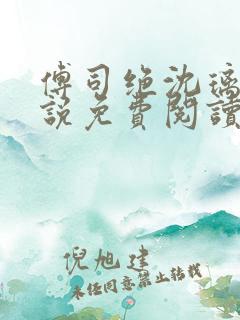 傅司绝沈璃
説免費閱讀
倪旭建
未经同意禁止转载